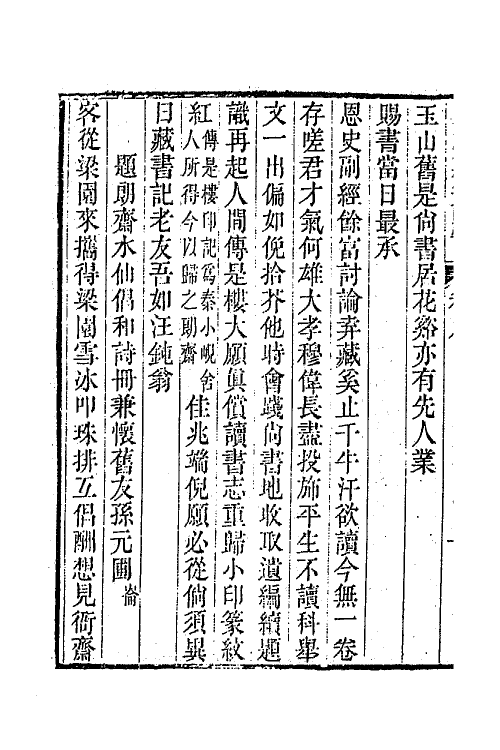 玉山舊是尙書居花谿亦有先人業
賜書當日最承
恩史副經餘富討論弆藏奚止千牛汗欲讀今無一卷
存嗟君才氣何雄大孝穆偉長盡投旆平生不讀科舉
文一出偏如俛拾芥他時會踐尙書地收取遺編續題
識再起人間傳是樓大願眞償讀書志重歸小印篆紋
紅傳是樓印記爲秦小峴舍人所得今以歸之助齋佳兆端倪願必從倘須異
日藏書記老友吾如汪鈍翁
題助齋水仙倡和詩冊兼懷舊友孫元圃
客從梁園來攜得梁園雪冰叩珠排互倡酬想見衙齋